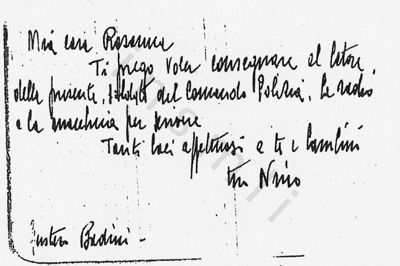 Mia cara Rosanna
Ti prego voler consegnare al latore
della presente, del Comando Polizia, la radio
e la macchina per scrivere
Tanti baci affettuosi a te e bambini
tuo Nino
Badini -